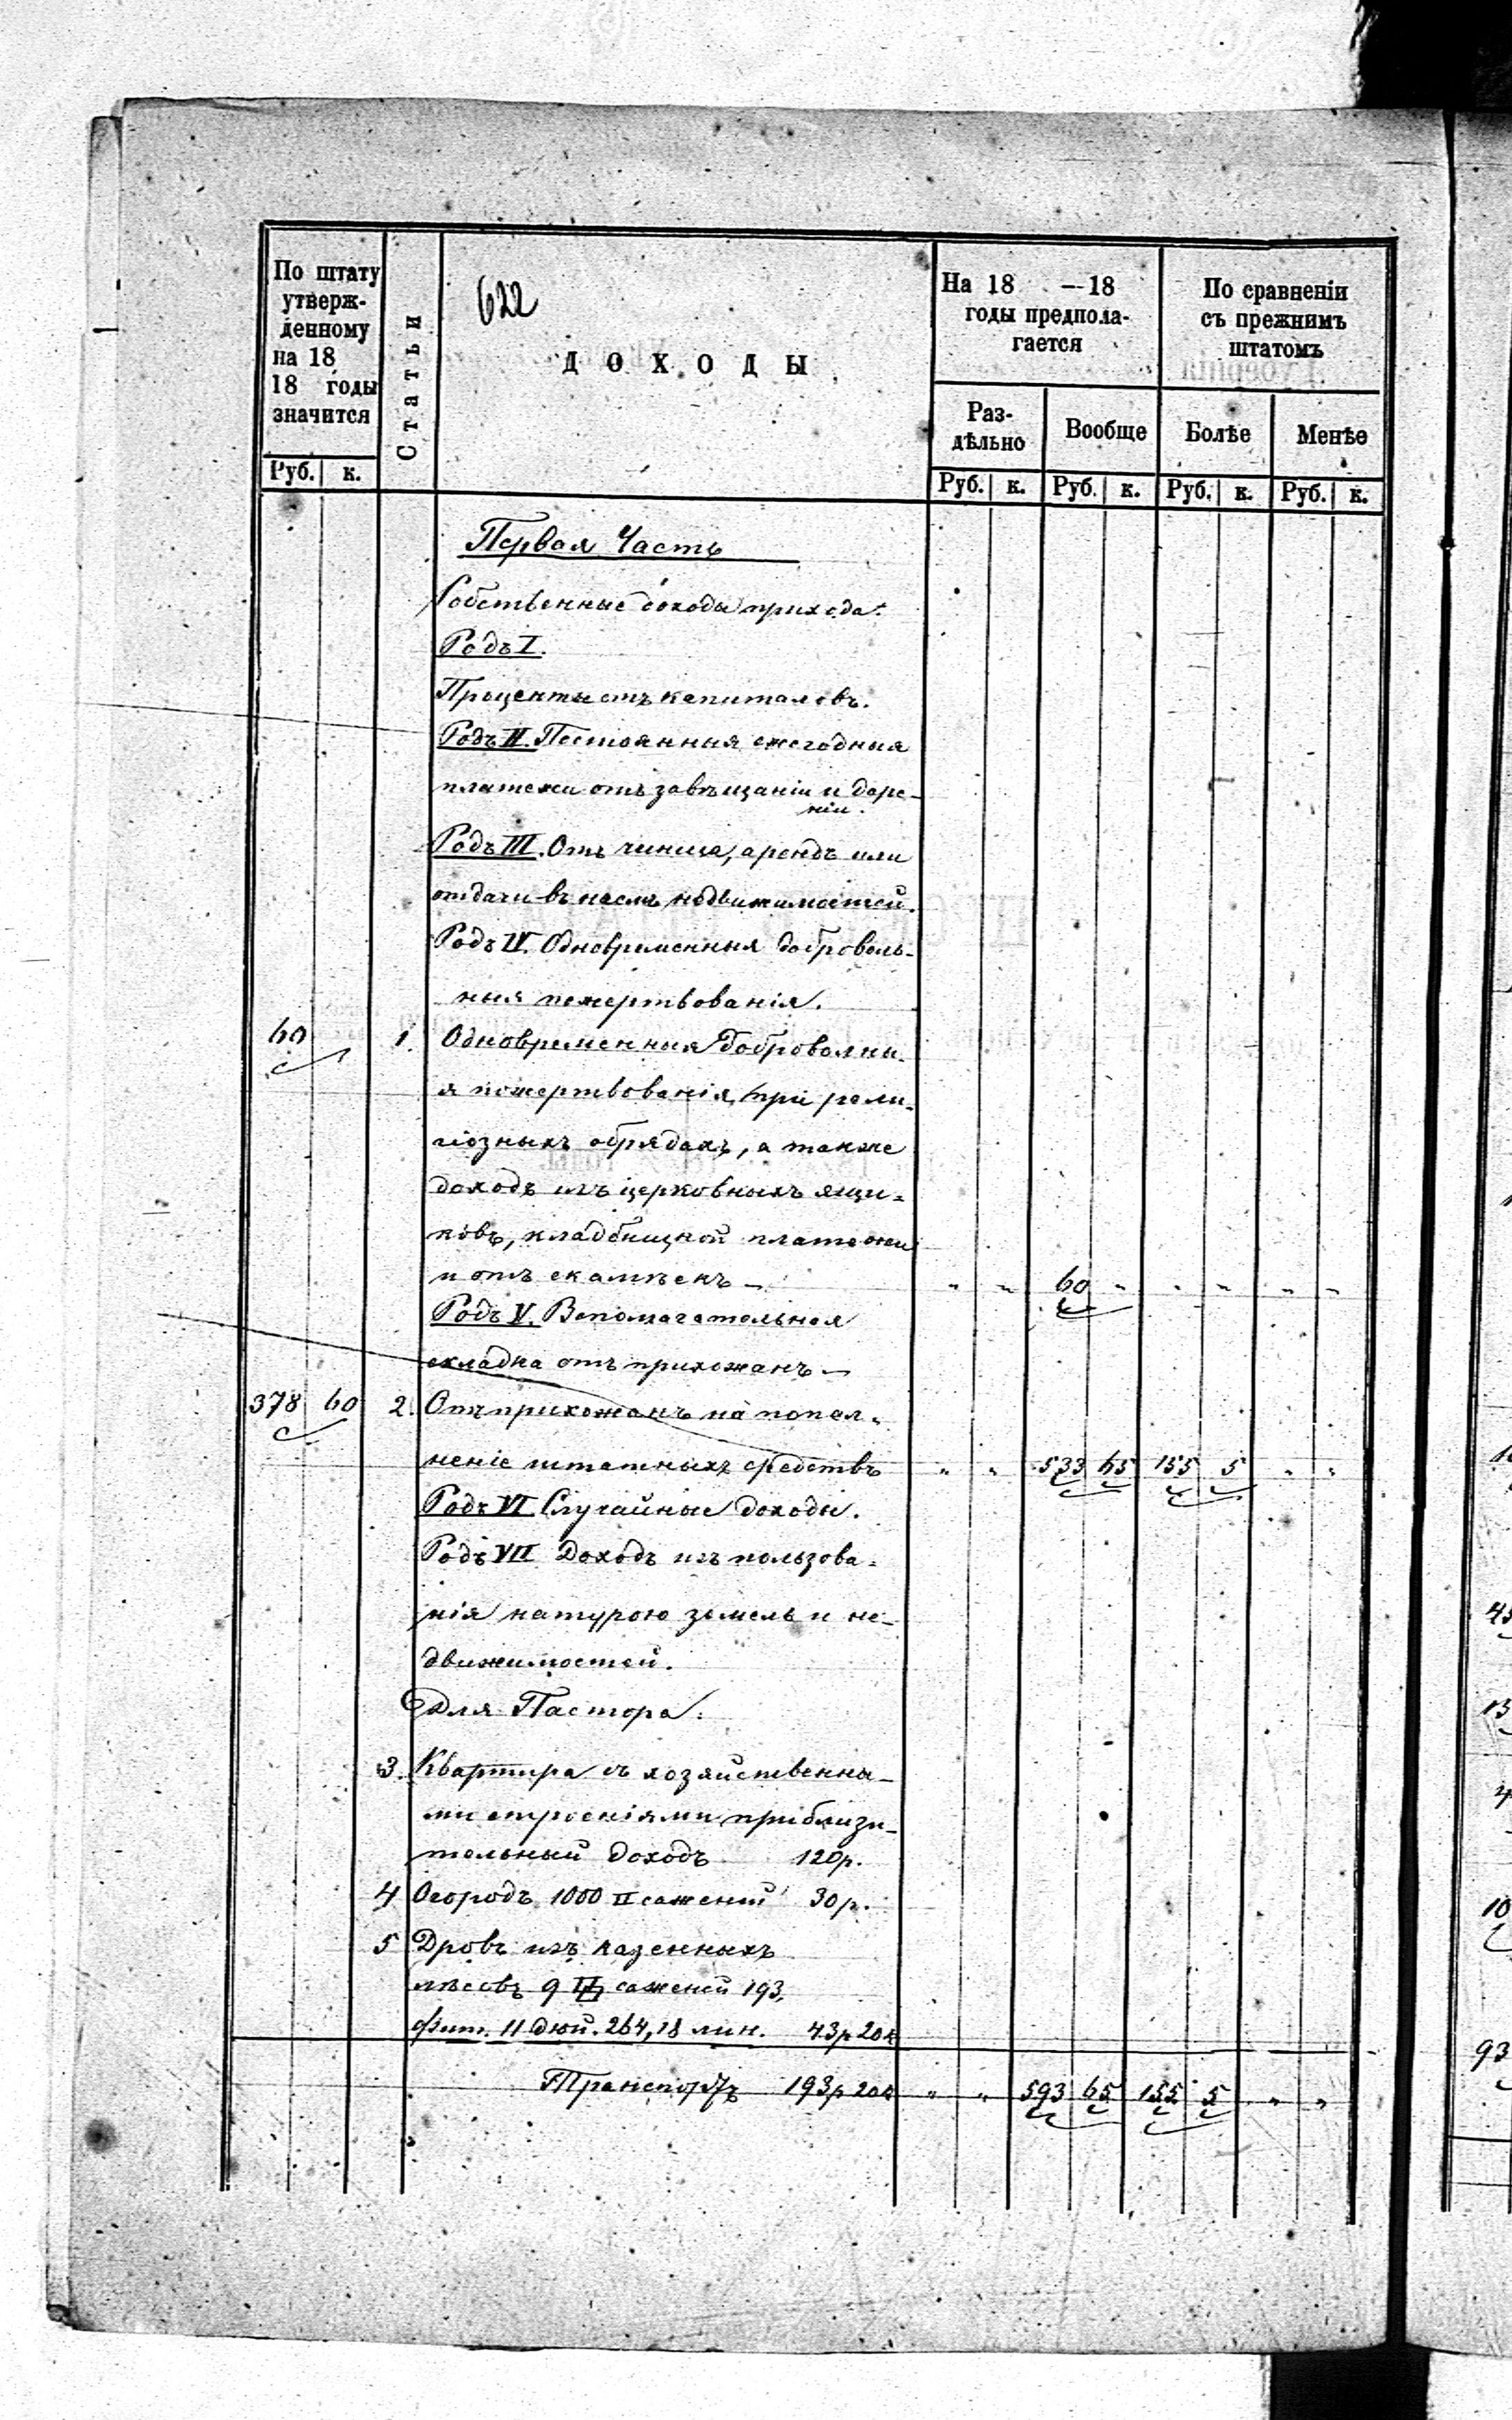 622
По штату
утверж-
денному
на 18
18 годы
значится
Статьи
ДОХОДЫ
На 18 — 18
годы предпола-
гается
По сравненіи
съ прежнимъ
штатомъ
Раз-
дѣльно
Вообще
Болѣе
Менѣе
Руб. к.
Руб. к. Руб. к. Руб. к. Руб. к.
Первая Часть
Собственные доходы прихода.
Родъ I.
Проценты отъ капиталовъ.
Родъ II. Постоянныя ежегодныя
платежи отъ завѣщаніи и даре-
ніи.
Родъ III. Отъ чинша, арендъ или
отдачи въ наемъ недвижимостей.
Родъ IV. Одновременныя доброволь-
ныя пожертвованія.
60 1. Одновременныя добровольны-
я пожертвованія, при рели-
гіозныхъ обрядахъ, а также
доходъ изъ церковныхъ ящи-
ковъ, кладбищной платежи
и отъ скамѣекъ — " " 60 " " " " "
Родъ V. Вспомагательная
складка отъ прихожанъ —
378 60 2. Отъ прихожанъ на попол-
неніе штатныхъ средствъ " " 533 65 155 5 " "
Родъ VI Случайные доходы.
Родъ VII Доходъ изъ пользова-
нія натурою земель и не-
движимостей.
Для Пастора.
3. Квартира съ хозяйственны-
ми строеніями приблизи-
тельный доходъ 120р.
4 Огородъ 1000 □ саженій 30р.
5 Дровъ изъ казенныхъ
лѣсовъ 9 саженей 193,
фут. 11 дюй. 264,18 лин. 43р 20к
Транспортъ 193р 20к " " 593 65 155 5 " "